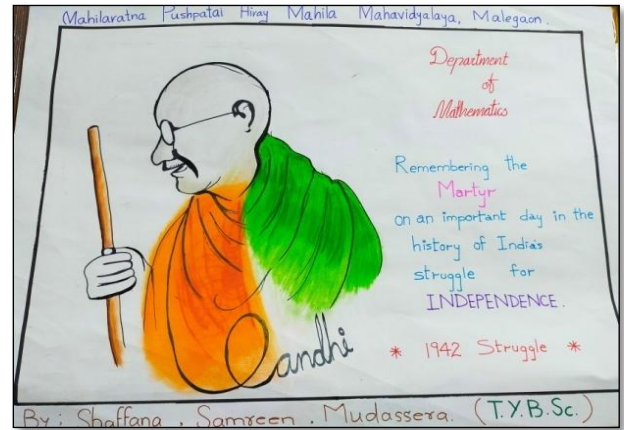 Mahilaratna Pushpatai Hiray Mahila Mahavidyalaya, Malegaon.
Department
of
Mathematics
Remembering the
Martyr
on an important day in the
history of India's
struggle for
INDEPENDENCE.
* 1942 Struggle *
Gandhi
By : Shaffana , Samreen , Mudassera. (T.Y.B.Sc.)